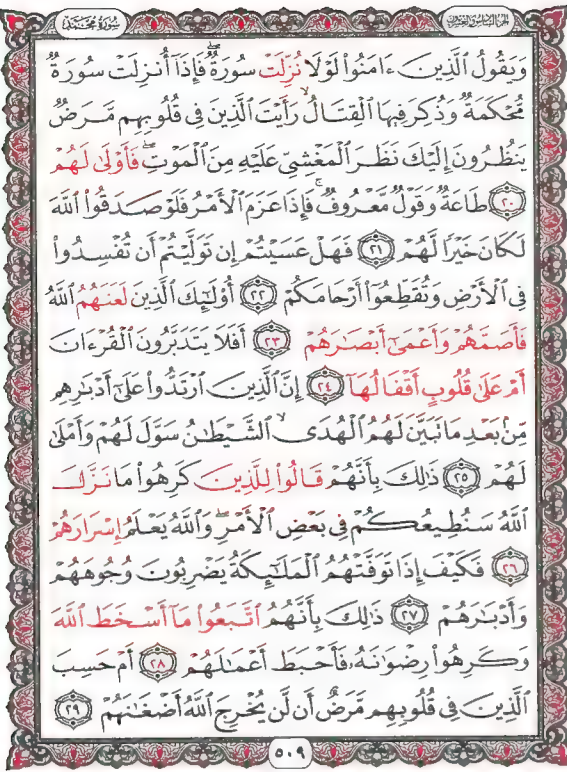 سورة محمد
الجزء السادس والعشرون
وَيَقُولُ ٱلَّذِينَ ءَامَنُوا۟ لَوْلَا نُزِّلَتْ سُورَةٌۖ فَإِذَآ أُنزِلَتْ سُورَةٌ
مُّحْكَمَةٌ وَذُكِرَ فِيهَا ٱلْقِتَالُۙ رَأَيْتَ ٱلَّذِينَ فِى قُلُوبِهِم مَّرَضٌ
يَنظُرُونَ إِلَيْكَ نَظَرَ ٱلْمَغْشِىِّ عَلَيْهِ مِنَ ٱلْمَوْتِۖ فَأَوْلَىٰ لَهُمْ
٢٠ طَاعَةٌ وَقَوْلٌ مَّعْرُوفٌۚ فَإِذَا عَزَمَ ٱلْأَمْرُ فَلَوْ صَدَقُوا۟ ٱللَّهَ
لَكَانَ خَيْرًا لَّهُمْ ٢١ فَهَلْ عَسَيْتُمْ إِن تَوَلَّيْتُمْ أَن تُفْسِدُوا۟
فِى ٱلْأَرْضِ وَتُقَطِّعُوٓا۟ أَرْحَامَكُمْ ٢٢ أُو۟لَٰٓئِكَ ٱلَّذِينَ لَعَنَهُمُ ٱللَّهُ
فَأَصَمَّهُمْ وَأَعْمَىٰٓ أَبْصَٰرَهُمْ ٢٣ أَفَلَا يَتَدَبَّرُونَ ٱلْقُرْءَانَ
أَمْ عَلَىٰ قُلُوبٍ أَقْفَالُهَآ ٢٤ إِنَّ ٱلَّذِينَ ٱرْتَدُّوا۟ عَلَىٰٓ أَدْبَٰرِهِم
مِّنۢ بَعْدِ مَا تَبَيَّنَ لَهُمُ ٱلْهُدَىۙ ٱلشَّيْطَٰنُ سَوَّلَ لَهُمْ وَأَمْلَىٰ
لَهُمْ ٢٥ ذَٰلِكَ بِأَنَّهُمْ قَالُوا۟ لِلَّذِينَ كَرِهُوا۟ مَا نَزَّلَ
ٱللَّهُ سَنُطِيعُكُمْ فِى بَعْضِ ٱلْأَمْرِۖ وَٱللَّهُ يَعْلَمُ إِسْرَارَهُمْ
٢٦ فَكَيْفَ إِذَا تَوَفَّتْهُمُ ٱلْمَلَٰٓئِكَةُ يَضْرِبُونَ وُجُوهَهُمْ
وَأَدْبَٰرَهُمْ ٢٧ ذَٰلِكَ بِأَنَّهُمُ ٱتَّبَعُوا۟ مَآ أَسْخَطَ ٱللَّهَ
وَكَرِهُوا۟ رِضْوَٰنَهُۥ فَأَحْبَطَ أَعْمَٰلَهُمْ ٢٨ أَمْ حَسِبَ
ٱلَّذِينَ فِى قُلُوبِهِم مَّرَضٌ أَن لَّن يُخْرِجَ ٱللَّهُ أَضْغَٰنَهُمْ ٢٩
٥٠٩